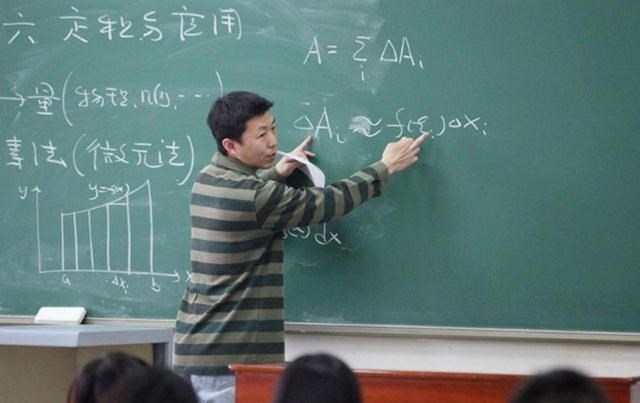 六 定积分应用
A = Σ ΔAᵢ
i
→量(物理,几何, ···
ΔAᵢ ≈ f(ξᵢ)Δxᵢ
素法(微元法)
y
y=f(x)
f(x) dx
a
Δxᵢ
b
x